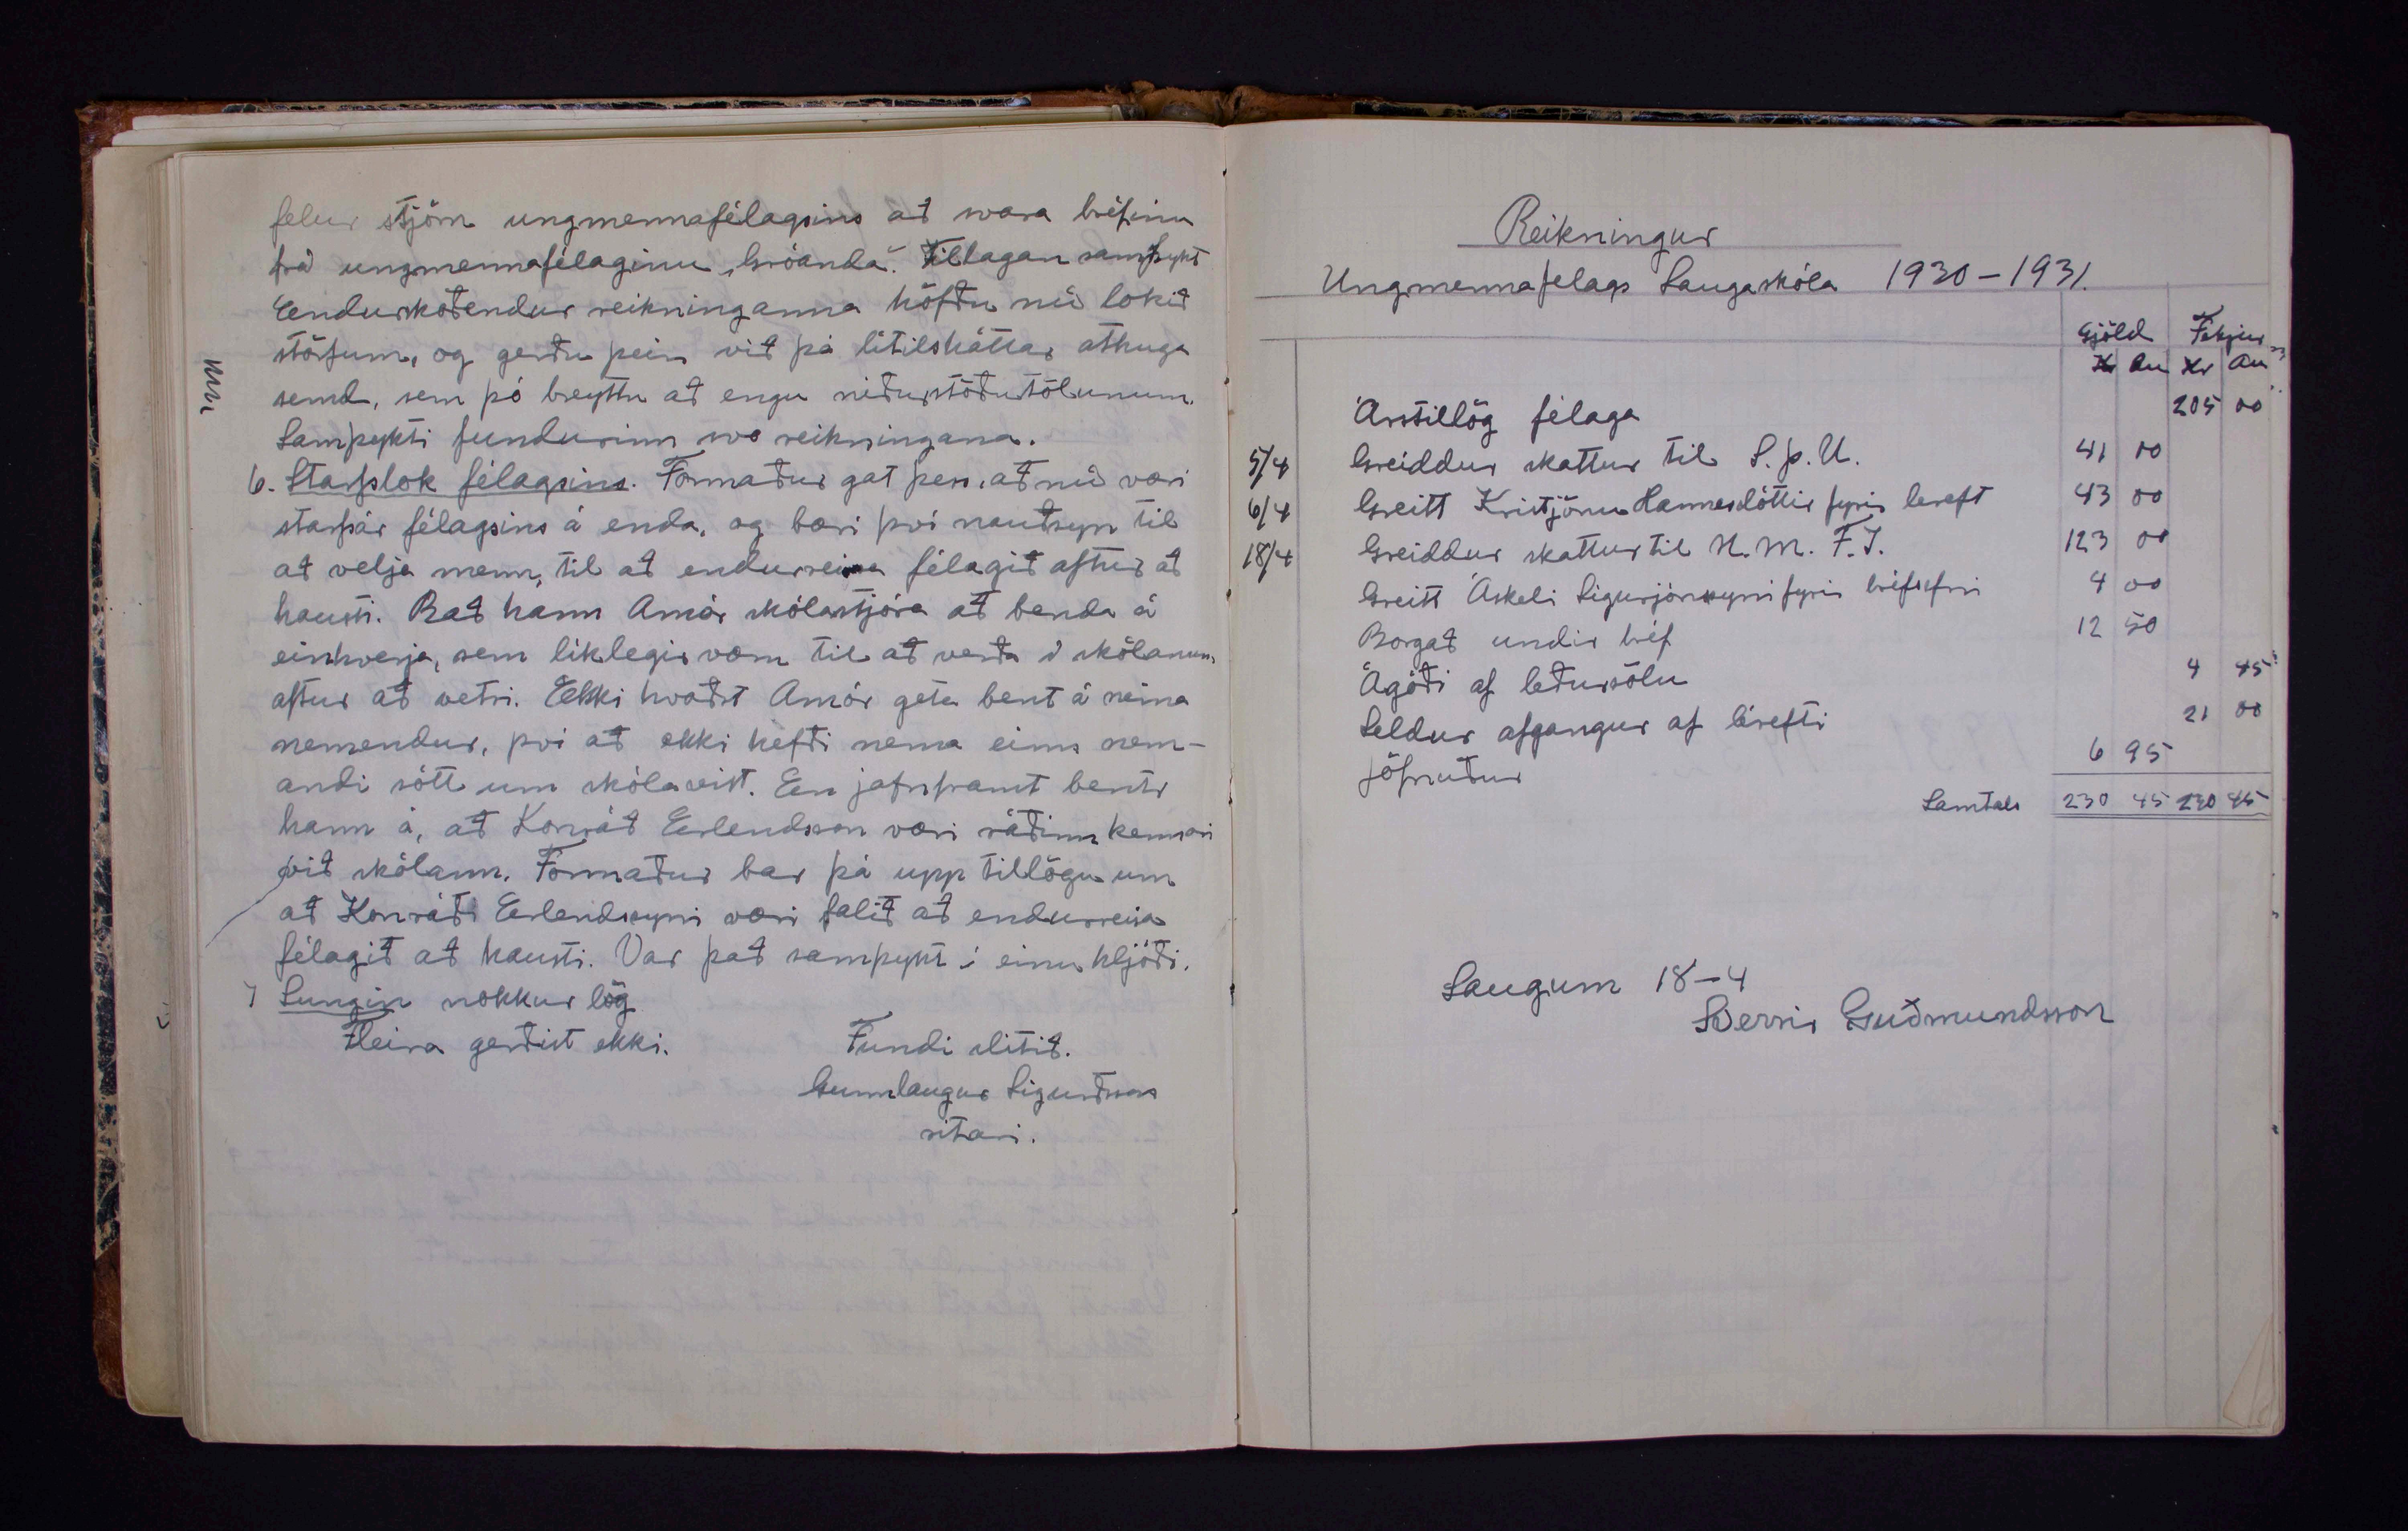 felur stjórn ungmennafélagsins að svara bréfinu
frá ungmennafélaginu „Gróanda". Tillagan samþykt
Endurskoðendur reikninganna höfðu nú lokið
störfum, og gerðu þeir við þá lítilsháttar athuga
semd, sem þó breyttu að engu niðurstöðutölunum.
Samþykti fundurinn svo reikningana.
6. Starfslok félagsins. Formaður gat þess, að nú væri
starfsár félagsins á enda, og bæri því nauðsyn til
að velja menn, til að endurreisa félagið aftur að
hausti. Bað hann Arnór skólastjóra að benda á
einhverja, sem líklegir væru til að verða í skólanum
aftur að vetri. Ekki kvaðst Arnór geta bent á neina
nemendur, því að ekki hefði nema einn nem-
andi sótt um skólavist. En jafnframt benti
hann á, að Konráð Erlendsson væri ráðinn kennari
við skólann. Formaður bar þá upp tillögu um
að Konráði Erlendssyni væri falið að endurreisa
félagið að hausti. Var það samþykt í einu hljóði.
7 Sungin nokkur lög
Fleira gerðist ekki. Fundi slitið.
Gunnlaugur Sigurðsson
ritari.
Reikningur
Ungmennafelags Laugaskóla 1930-1931.
Gjöld Tekjur
Kr Au Kr Au
Árstillög félaga 205 00
5/4 Greiddur skattur til S.þ.U. 41 00
6/4 Greitt Kristjönu Hannesdóttir fyrir lereft 43 00
18/4 Greiddur skattur til U.M.F.Í. 123 00
Greitt Áskeli Sigurjónssyni fyrir bréfsefni 4 00
Borgað undir bréf 12 50
Ágóði af leðursölu 4 45
Seldur afgangur af lérefti 21 00
Jöfnuður 6 95
Samtals 230 45 230 45
Laugum 18-4
Sverrir Guðmundsson